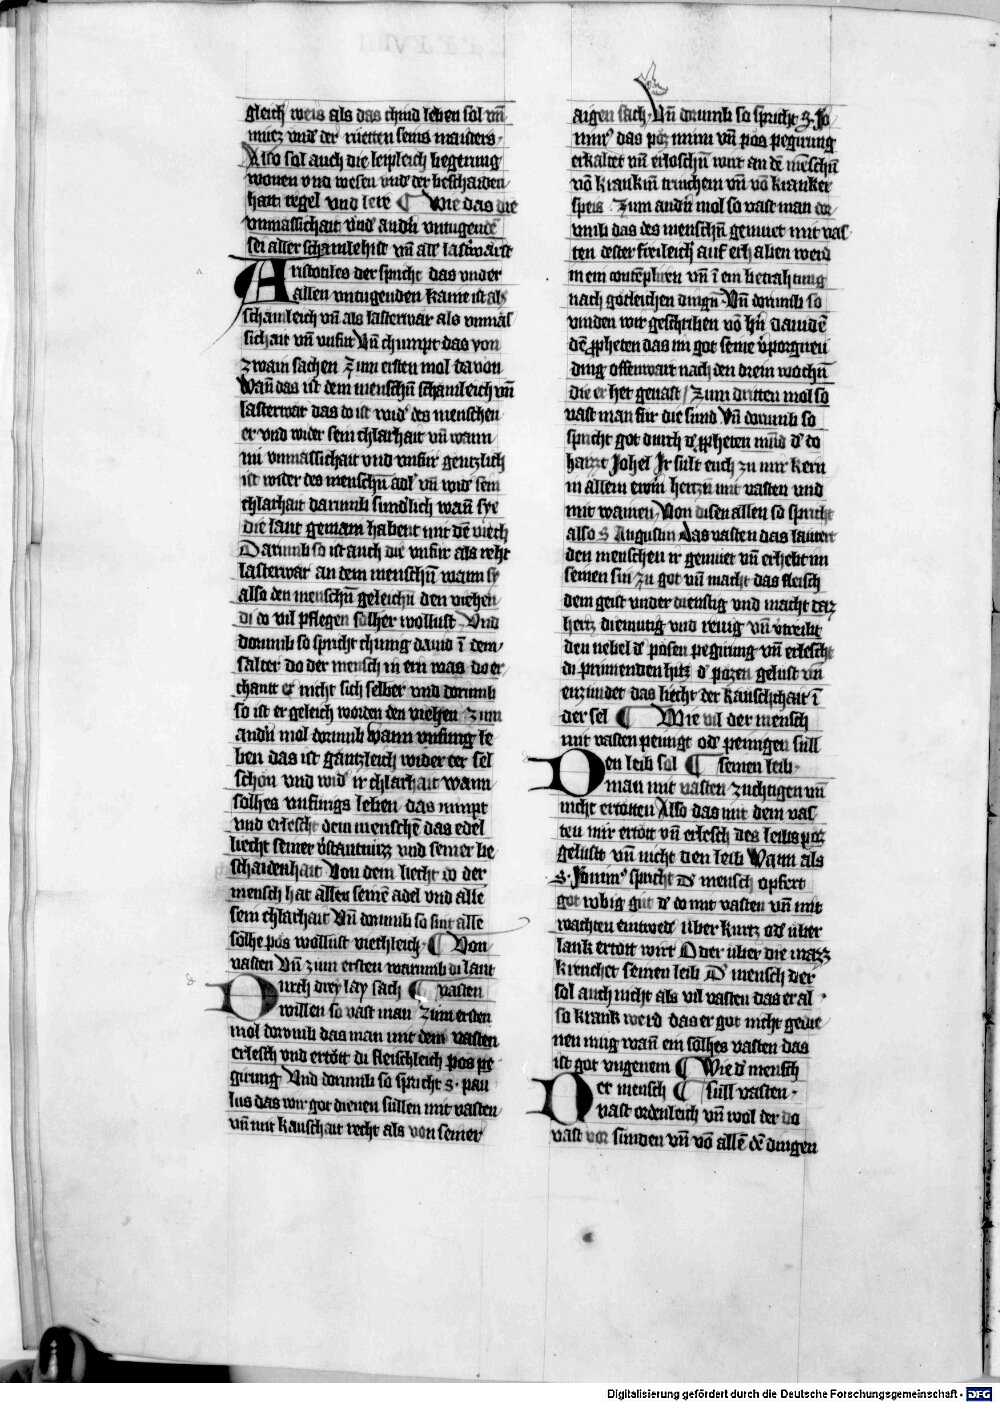 gleich weis als das chind leben sol vn̄
muez vnder der rueten seins maisters
Also sol auch die leipleich begerung
wonen vnd wesen vnder der beschaiden
hait regel vnd lere ¶ Wie das die
vnmassichait vnd andr̄ vntugende
sei aller schamlehist vn̄ aller lasterwarst
Aristotiles der spricht das vnder
allen vntugenden kaine ist als
schamleich vn̄ als lasterwar als vnmas
sichait vn̄ vnfur Vn̄ chumpt das von
zwain sachen Zum ersten mol davon
Wan̄ das ist dem menschn̄ schamleich vn̄
lasterwar das do ist wider des menschen
er vnd wider sein chlarhait vn̄ wann
nu vnmassichait vnd vnfur gentzlich
ist wider des menschn̄ adl vn̄ wider sein
chlarhait darumb sundlich wan̄ sye
die laut gemain habent mit dē viech
Darumb so ist auch die vnfur als reht
lasterwar an dem menschn̄ wann sy
also den menschn̄ geleichn̄ den viehen
di do vil pflegen solher wollust Vnd
dorumb so spricht chunig dauid ī dem
salter do der mensch in ern was do er
chant er nicht sich selber vnd dorumb
so ist er geleich worden den viehen Zum
andr̄n mol dorumb wann vnfung le
ben das ist gantzleich wider der sel
schon vnd wider ir chlarhait wann
solhes vnfings leben das nimpt
vnd erlescht dem menschē das edel
liecht seiner v̄stantnuzz vnd seiner be
schaidenhait Von dem liecht do der
mensch hat allen seinē adel vnd alle
sein chlarhait Vn̄ dorumb so sint alle
solhe pos wollust viechleich ¶ Von
vasten Vn̄ zum ersten warumb di laut
Durch drey lay sach ¶ vasten
willen so vast man Zum ersten
mol dorumb das man mit dem vasten
erlesch vnd ertott di fleischleich pos pe
girung Vnd dorumb so spricht s. pau
lus das wir got dienen sullen mit vasten
vn̄ mit kauschait recht als von seiner
aigen sach Vn̄ dorumb so spricht S Jo
nim9 das poz minn vn̄ pos pegirung
erkaltet vn̄ erloschn̄ wirt an dē mēschn̄
vō krankm̄ trinchem vn̄ vō kranker
speis Zum andr̄n mol so vast man dor
vmb das des menschn̄ gemuet mit vas
ten dester freileich auf erhaben werd
in ein contēplirn vn̄ ī ein betrahtung
nach gotleichen dingn̄ Vn̄ dorumb so
vinden wir geschriben vō hn̄ danidē
dē ꝓpheten das im got seine v̄porgneu
ding offenwart nach den drein wochn̄
die er het geuast / Zum dritten mol so
vast man fur die sund Vn̄ dorumb so
spricht got durch dē ꝓpheten mūd d̄ do
haizzt Johel Jr sult euch zu mir kern
in allem ewrn hertzn̄ mit vasten vnd
mit wainen Von disen allen so spricht
also S Augustin Das vasten das lautert
den menschen ir gemuet vn̄ erhebt im
seinen sin zu got vn̄ macht das fleisch
dem geist vnder dienstig vnd macht daz
hertz diemutig vnd reuig vn̄ v̄treibt
den nebel d̄ posen pegirung vn̄ erlescht
di prinnenden hitz d̄ pozen gelust vn̄
enzundet das liecht der kauschchait ī
der sel ¶ Wie vil der mensch
mit vasten peinigt od̄ peinigen sull
Den leib sol ¶ seinen leib
man mit vasten zuchtigen vn̄
nicht ertotten Also das mit dem vas
ten wir ertott vn̄ erlesch des leibs poz
geluste vn̄ nicht den leib Wann als
S. Jonim9 spricht D̄ mensch opfert
got robig gut d̄ do mit vasten vn̄ mit
wachen eintwed̄ uber kurtz od̄ uber
lank ertott wirt Oder uber die mazz
krenchet seinen leib D̄ mensch der
sol auch nicht als vil vasten das er al
so krank werd das er got nicht gedie
nen mug wan̄ ein solhes vasten das
ist got vngenem ¶ Wie d̄ mensch
Der mensch ¶ sull vasten
vast ordenleich vn̄ wol der do
vast vor sunden vn̄ vō allē dē dingen
Digitalisierung gefördert durch die Deutsche Forschungsgemeinschaft - DFG